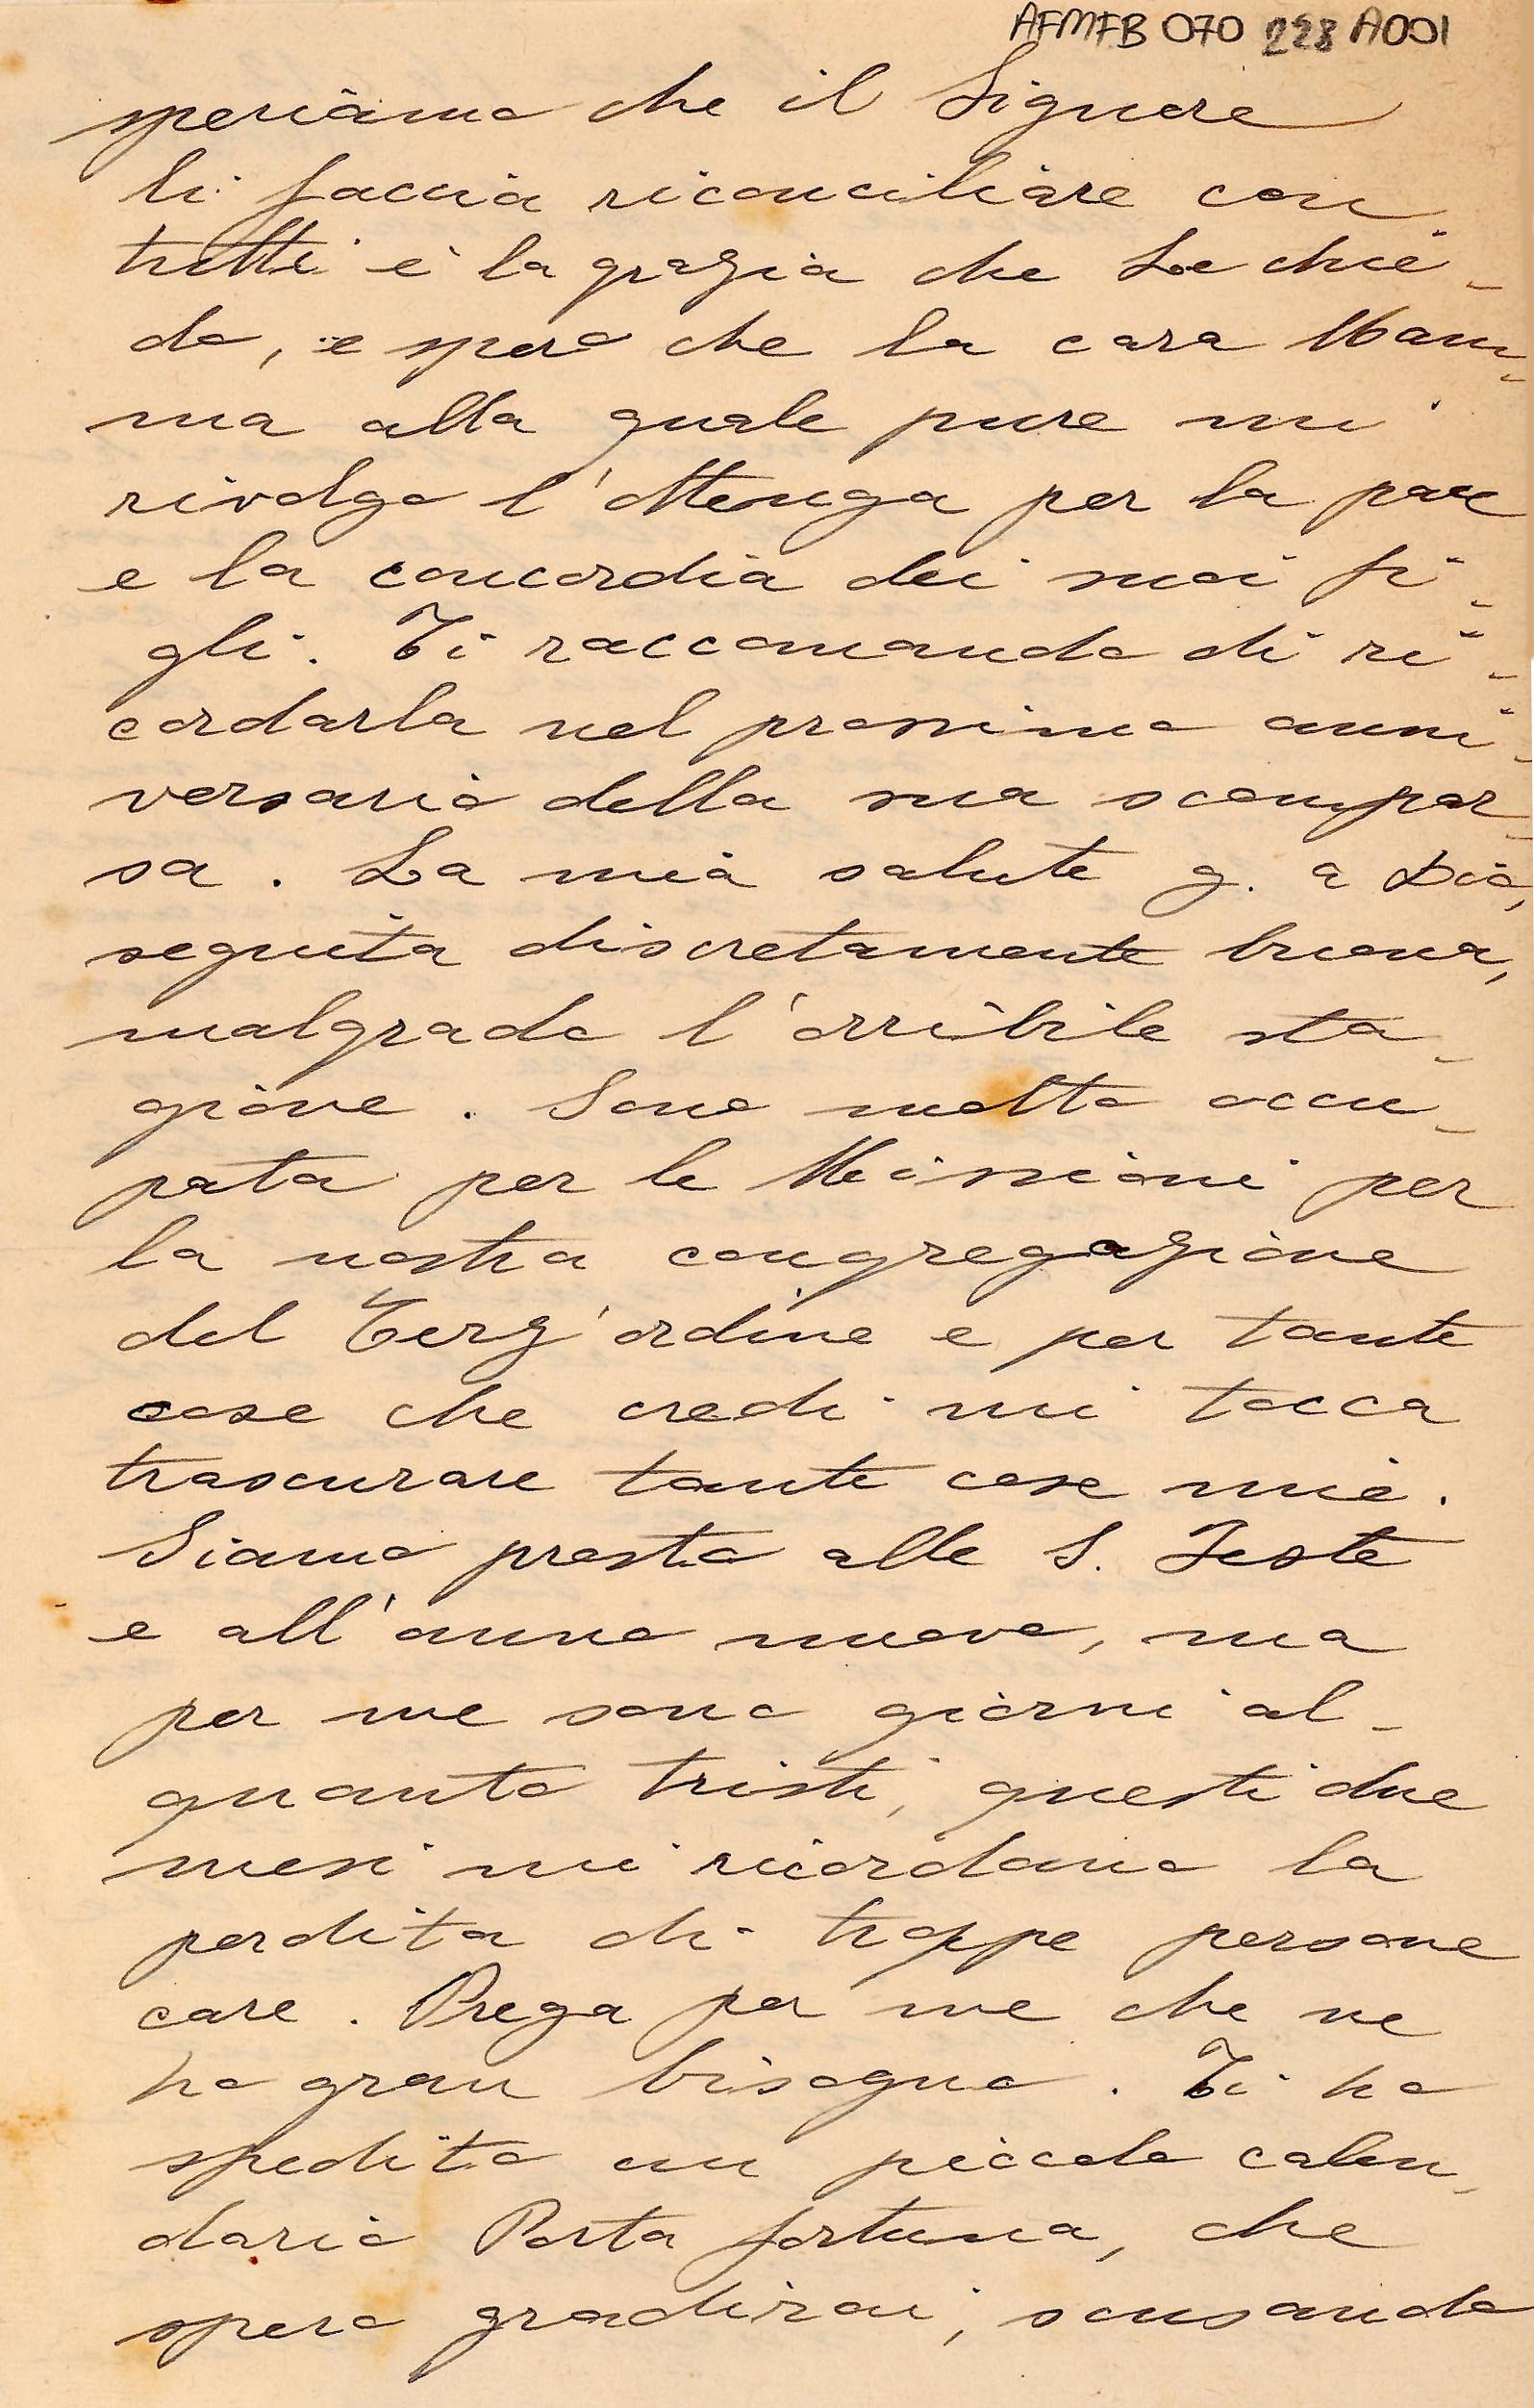 AFMFB 070 228 A001
speriamo che il Signore
li faccia riconciliare con
tutti è la grazia che Le chie-
do, e spero che la cara Mam-
ma alla quale pure mi
rivolgo l'ottenga per la pace
e la concordia dei suoi fi-
gli. Ti raccomando di ri-
cordarla nel prossimo anni-
versario della sua scompar-
sa. La mia salute g. a Dio,
seguita discretamente buona,
malgrado l'orribile sta-
gione. Sono molto occu-
pata per le Missioni per
la nostra congregazione
del Terz'ordine e per tante
cose che credi mi tocca
trascurare tante cose mie.
Siamo presto alle S. Feste
e all'anno nuovo, ma
per me sono giorni al-
quanto tristi, questi due
mesi mi ricordano la
perdita di troppe persone
care. Prega per me che ne
ho gran bisogno. Ti ho
spedito un piccolo calen-
dario Porta fortuna, che
spero gradirai, scusando